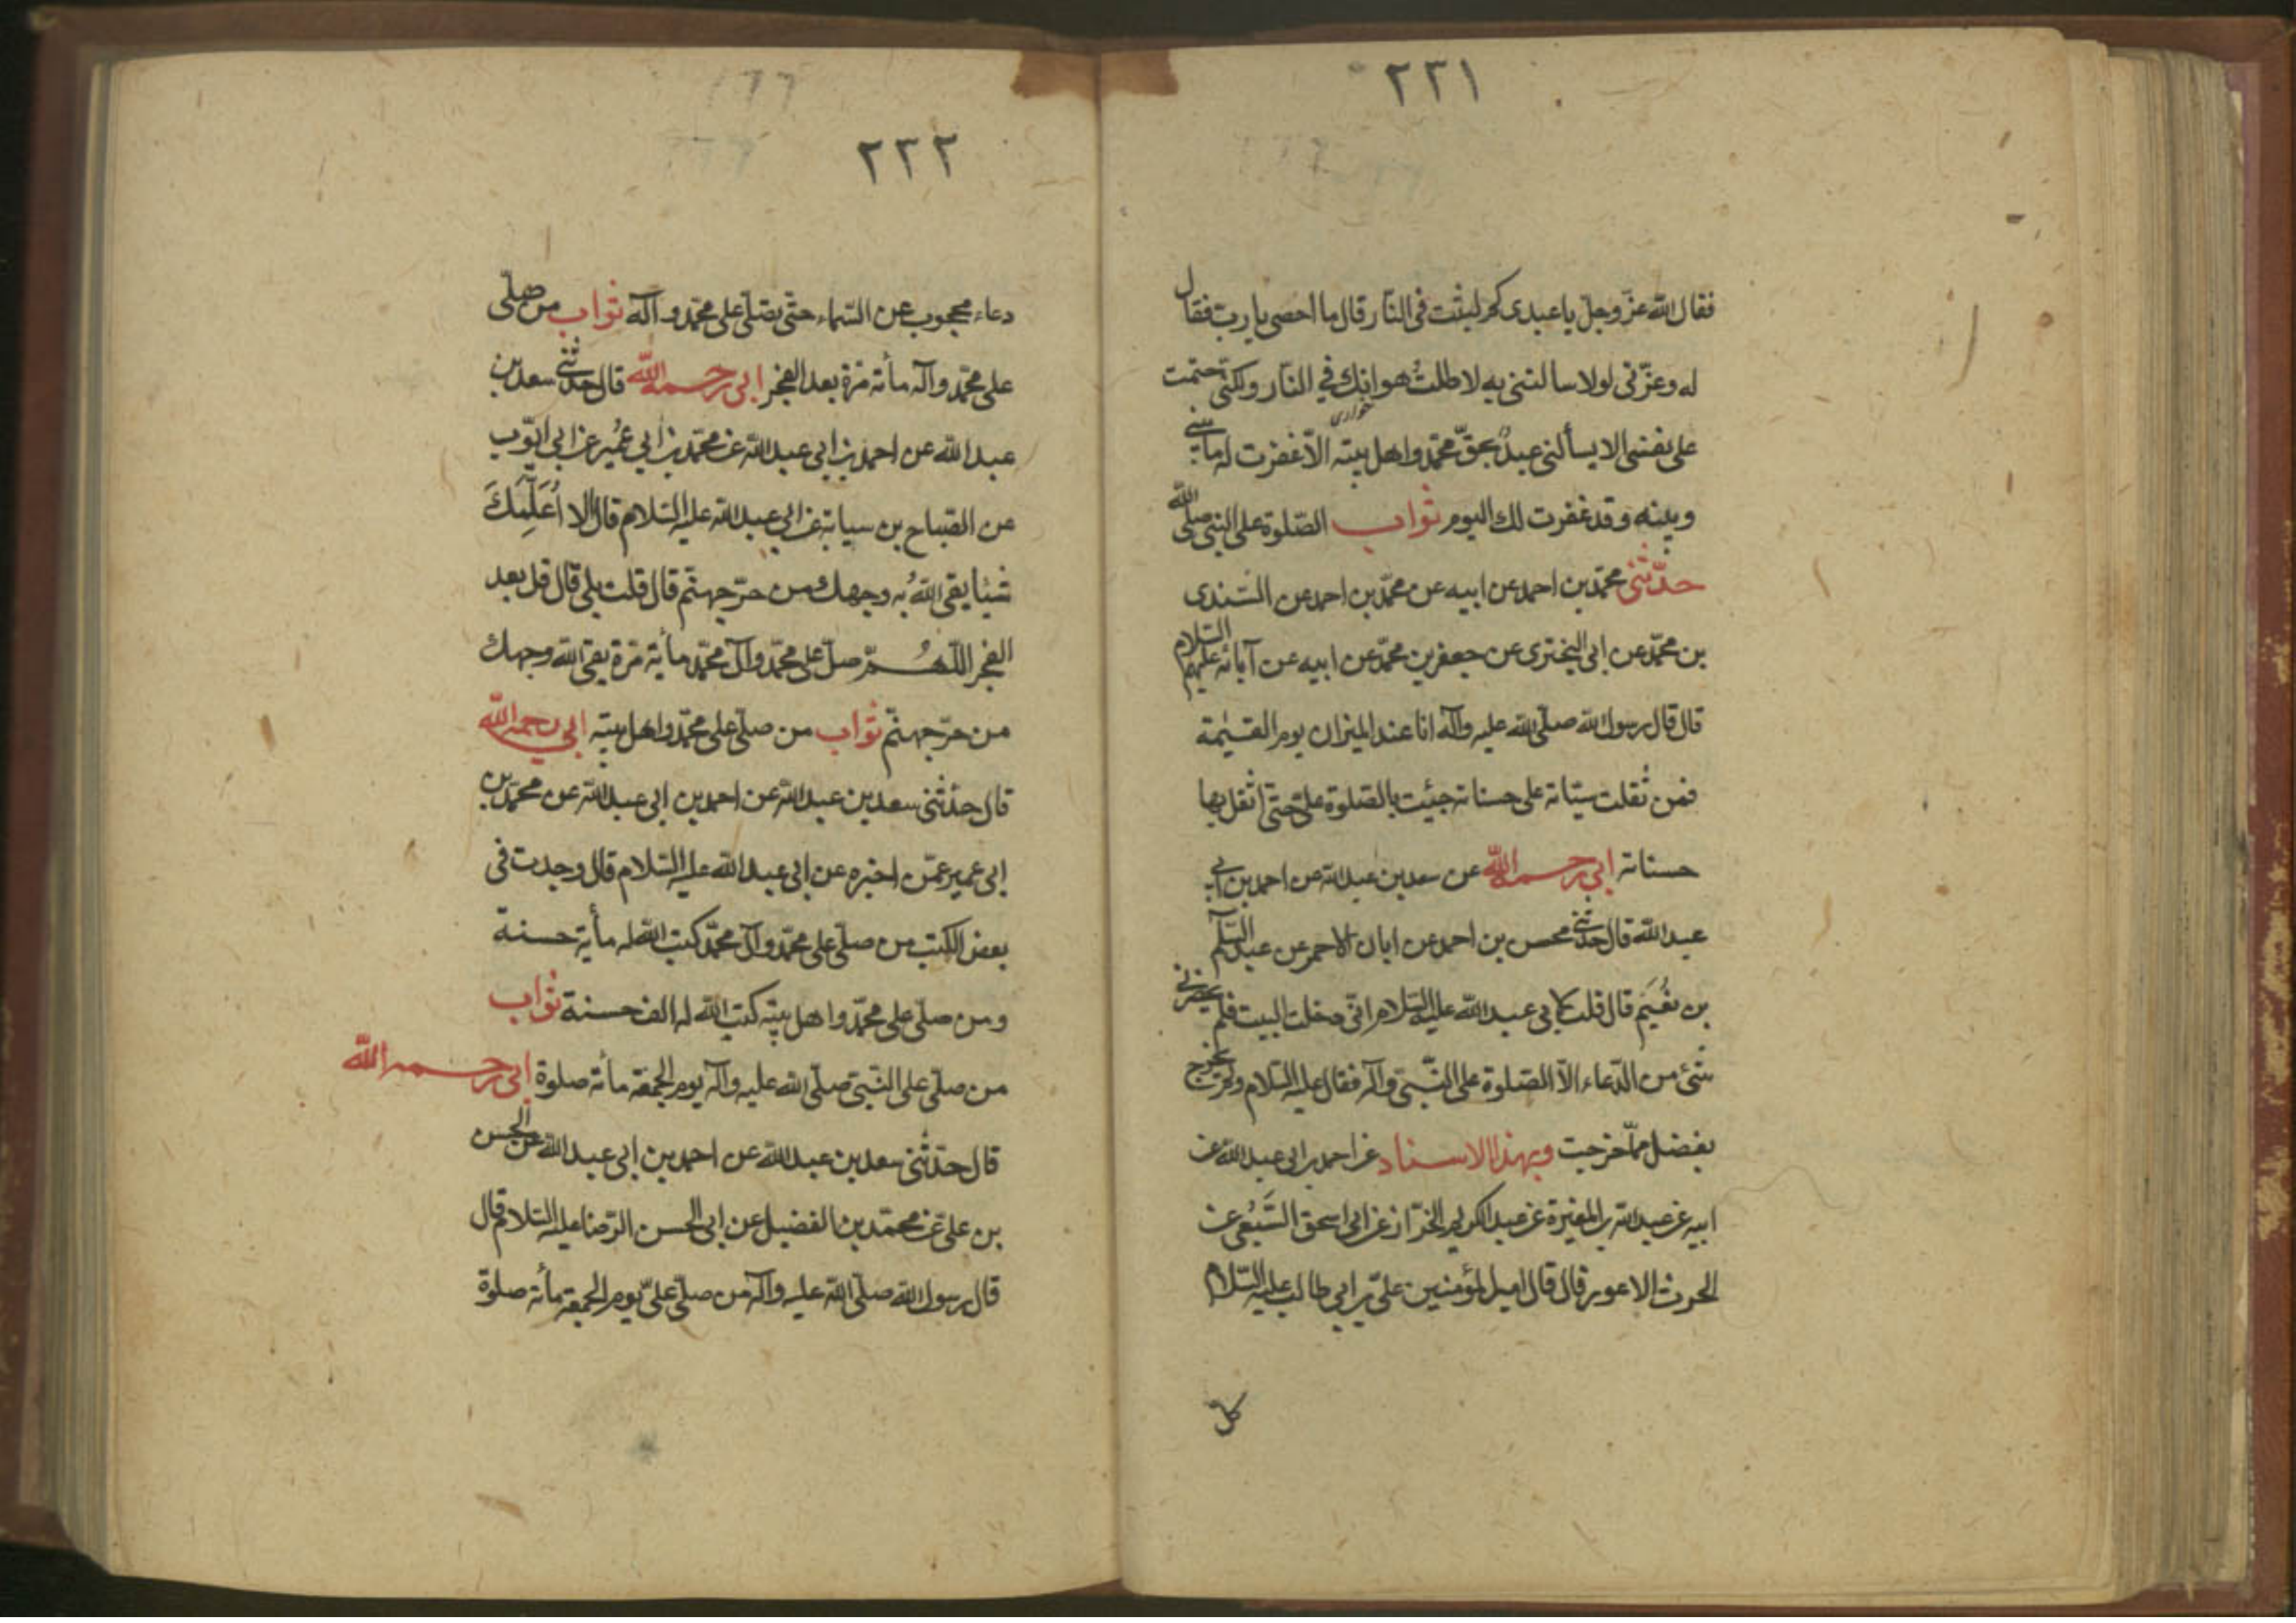 ٢٢١
فقال الله عزّ وجلّ يا عبدى كم لبثت فى النّار قال ما احصى يا ربّ فقال
له وعزّتى لولا ما سالتنى به لاطلتُ هوانك في النّار ولكنّى حتمت
على نفسى الا يسألنى عبدٌ بحقّ محمّد واهل بيته الّا غفرت له ما بينى
وبينه وقد غفرت لك اليوم ثواب الصّلوة على النّبى صلّى الله
حدّثنى محمّد بن احمد عن ابيه عن محمّد بن احمد عن السّندى
بن محمّد عن ابى البخترى عن جعفر بن محمّد عن ابيه عن آبائه عليهم السّلام
قال قال رسول الله صلّى الله عليه وآله انا عند الميزان يوم القيٰمة
فمن ثقلت سيّاته على حسناته جيئت بالصّلوة علىّ حتّى اثقل بها
حسناته ابي رحمه الله عن سعد بن عبد الله عن احمد بن ابي
عبد الله قال حدّثني محسن بن احمد عن ابان الاحمر عن عبد السّلم
بن نُعَيم قال قلت لابى عبد الله عليه السّلام انّى دخلت البيت فلم يحضرنى
شئ من الدّعاء الّا الصّلوة على النّبىّ وآله فقال عليه السّلام ولم يخرج
بفضل ممّا خرجت وبهذا الاسناد عن احمد بن ابى عبد الله عن
ابيه عن عبد الله بن المغيرة عن عبد الكريم الخزّاز عن ابى اسحق السَّبيعى عن
الحرث الاعور قال قال امير المؤمنين علىّ بن ابي طالب عليه السّلام
كل
٢٢٢
دعاء محجوب عن السّماء حتّى يصلّى على محمّد وآله ثواب من صلّى
على محمّد وآله مأته مرّة بعد الفجر ابى رحمه الله قال حدّثنى سعد بن
عبد الله عن احمد بن ابى عبد الله عن محمّد بن ابي عُمير عن ابى ايّوب
عن الصّباح بن سيابة عن ابى عبد الله عليه السّلام قال الا اُعَلِّمكَ
شيئا يقى اللهُ به وجهك من حرّ جهنّم قال قلت بلى قال قل بعد
الفجر اللّهُمّ صلّ على محمّد وآل محمّد مأية مرّة يقى الله وجهك
من حرّ جهنّم ثواب من صلّى على محمّد واهل بيته ابي رحمه الله
قال حدّثنى سعد بن عبد الله عن احمد بن ابى عبد الله عن محمّد بن
ابى عمير عمّن اخبره عن ابى عبد الله عليه السّلام قال وجدت فى
بعض الكتب من صلّى على محمّد وآل محمّد كتب الله له مأية حسنة
ومن صلّى على محمّد واهل بيته كتب الله له الف حسنة ثواب
من صلّى على النّبىّ صلّى الله عليه وآله يوم الجمعة مأته صلوة ابى رحمه الله
قال حدّثنى سعد بن عبد الله عن احمد بن ابى عبد الله عن الحسن
بن علىّ عن محمّد بن الفضيل عن ابى الحسن الرّضا عليه السّلام قال
قال رسول الله صلّى الله عليه وآله من صلّى علىّ يوم الجمعة مأته صلوة